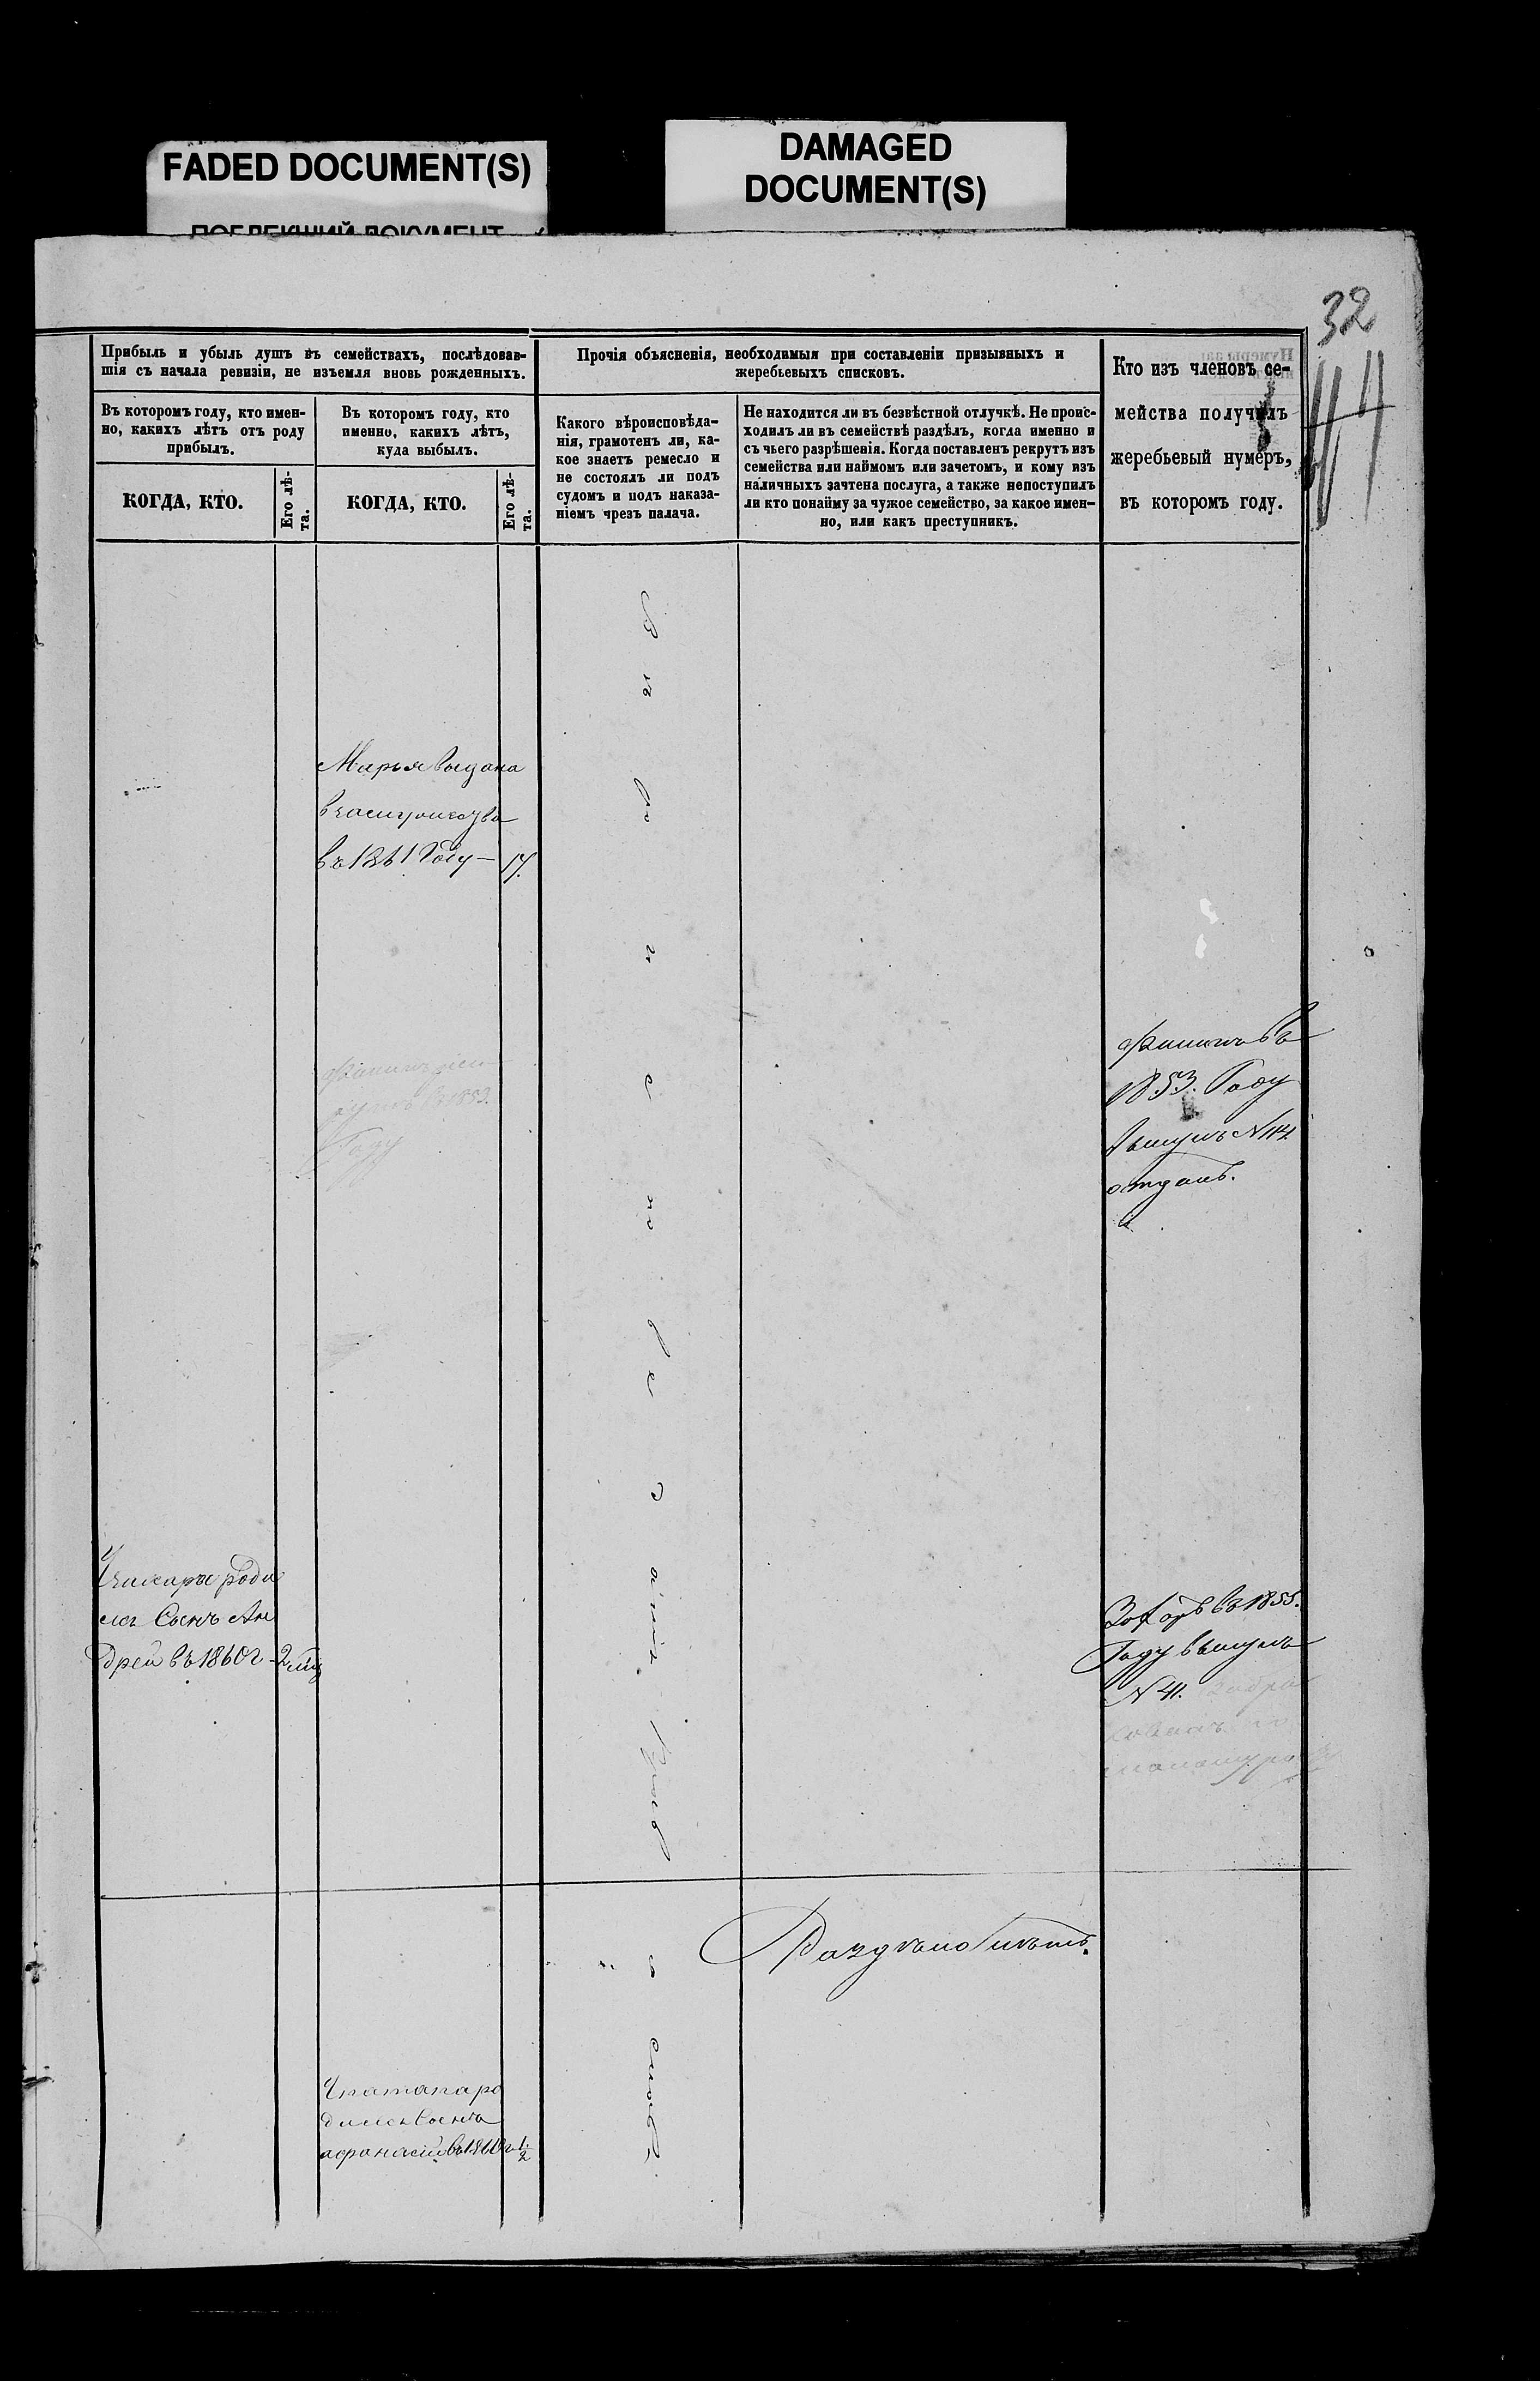 FADED DOCUMENT(S)
ПОБЛЕКШИЙ ДОКУМЕНТ
DAMAGED
DOCUMENT(S)
32
Прибыль и убыль душъ въ семействахъ, послѣдовав-
шія съ начала ревизіи, не изъемля вновь рожденныхъ.
Прочія объясненія, необходимыя при составленіи призывныхъ и
жеребьевыхъ списковъ.
Кто изъ членовъ се-
мейства получилъ
жеребьевый нумеръ,
въ которомъ году.
Въ которомъ году, кто имен-
но, какихъ лѣтъ отъ роду
прибылъ.
Въ которомъ году, кто
именно, какихъ лѣтъ,
куда выбылъ.
Какого вѣроисповѣда-
нія, грамотенъ ли, ка-
кое знаетъ ремесло и
не состоялъ ли подъ
судомъ и подъ наказа-
ніемъ чрезъ палача.
Не находится ли въ безвѣстной отлучкѣ. Не проис-
ходилъ ли въ семействѣ раздѣлъ, когда именно и
съ чьего разрѣшенія. Когда поставленъ рекрутъ изъ
семейства или наймомъ или зачетомъ, и кому изъ
наличныхъ зачтена послуга, а также непоступилъ
ли кто понайму за чужое семейство, за какое имен-
но, или какъ преступникъ.
КОГДА, КТО.
Его лѣ-
та.
КОГДА, КТО.
Его лѣ-
та.
Марья выдана
въ 1861 Году — 17.
Филипъ
1853.
Году
Филипъ въ
1853. Году
вынулъ N 114
отданъ.
Узахара роди
лся Сынъ Ан
дрей въ 1860 г - 2
Захаръ въ 1855.
Году вынулъ
N 41.
Раздѣла
Употапа ро
дился Сынъ
афанасій въ 1860 г 1/2